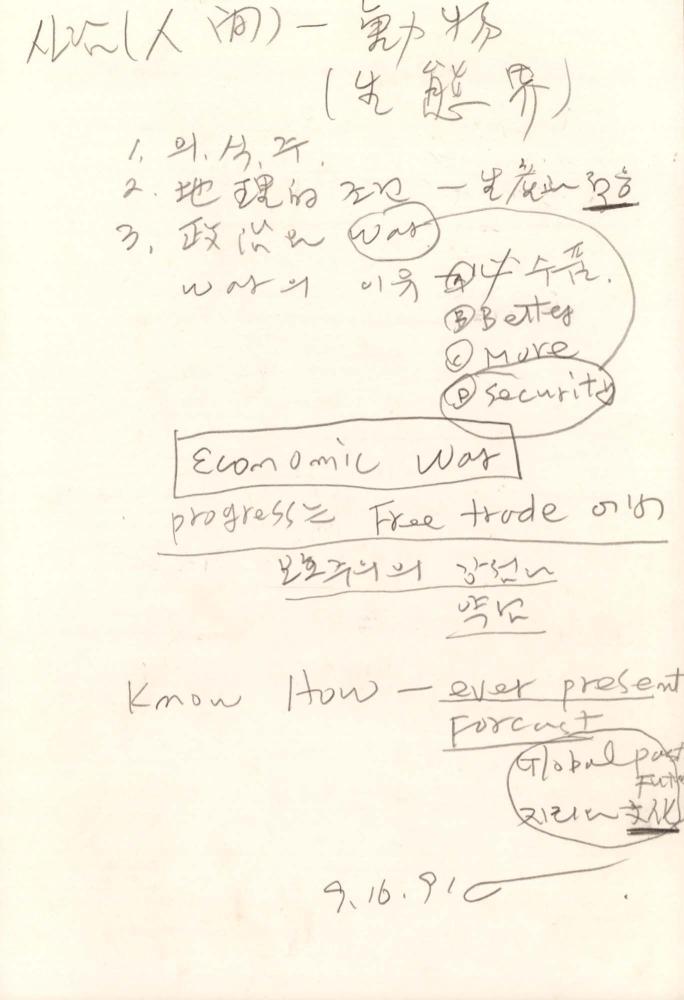 사람(人間) — 動物
(生態界)
1. 의.식.주.
2. 地理的 조건 — 生産과
3. 政治와 War
War의 이유 Ⓐ 必수품.
Ⓑ Better
Ⓒ More
Ⓓ Security
Economic War
progress는 Free trade
보호주의의 장점과
약점
Know How — ever present
Forcast
Global past
Futu
지리와 文化
9.16.91